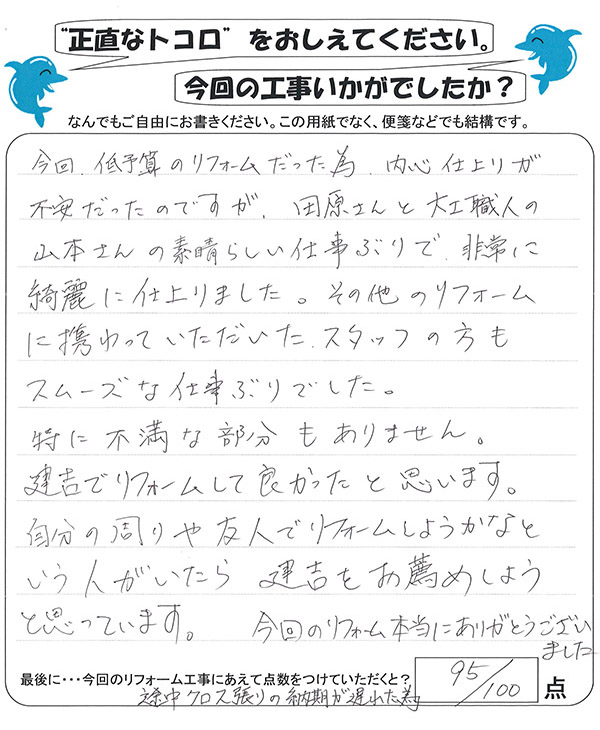 "正直なトコロ"をおしえてください。
今回の工事いかがでしたか？
なんでもご自由にお書きください。この用紙でなく、便箋などでも結構です。
今回、低予算のリフォームだった為、内心仕上りが
不安だったのですが、田原さんと大工職人の
山本さんの素晴らしい仕事ぶりで、非常に
綺麗に仕上りました。その他のリフォーム
に携わっていただいた、スタッフの方も
スムーズな仕事ぶりでした。
特に不満な部分もありません。
建吉でリフォームして良かったと思います。
自分の周りや友人でリフォームしようかなと
いう人がいたら 建吉をお薦めしよう
と思っています。 今回のリフォーム本当にありがとうござい
ました
最後に・・・今回のリフォーム工事にあえて点数をつけていただくと？ 95/100 点
途中クロス張りの納期が遅れた為